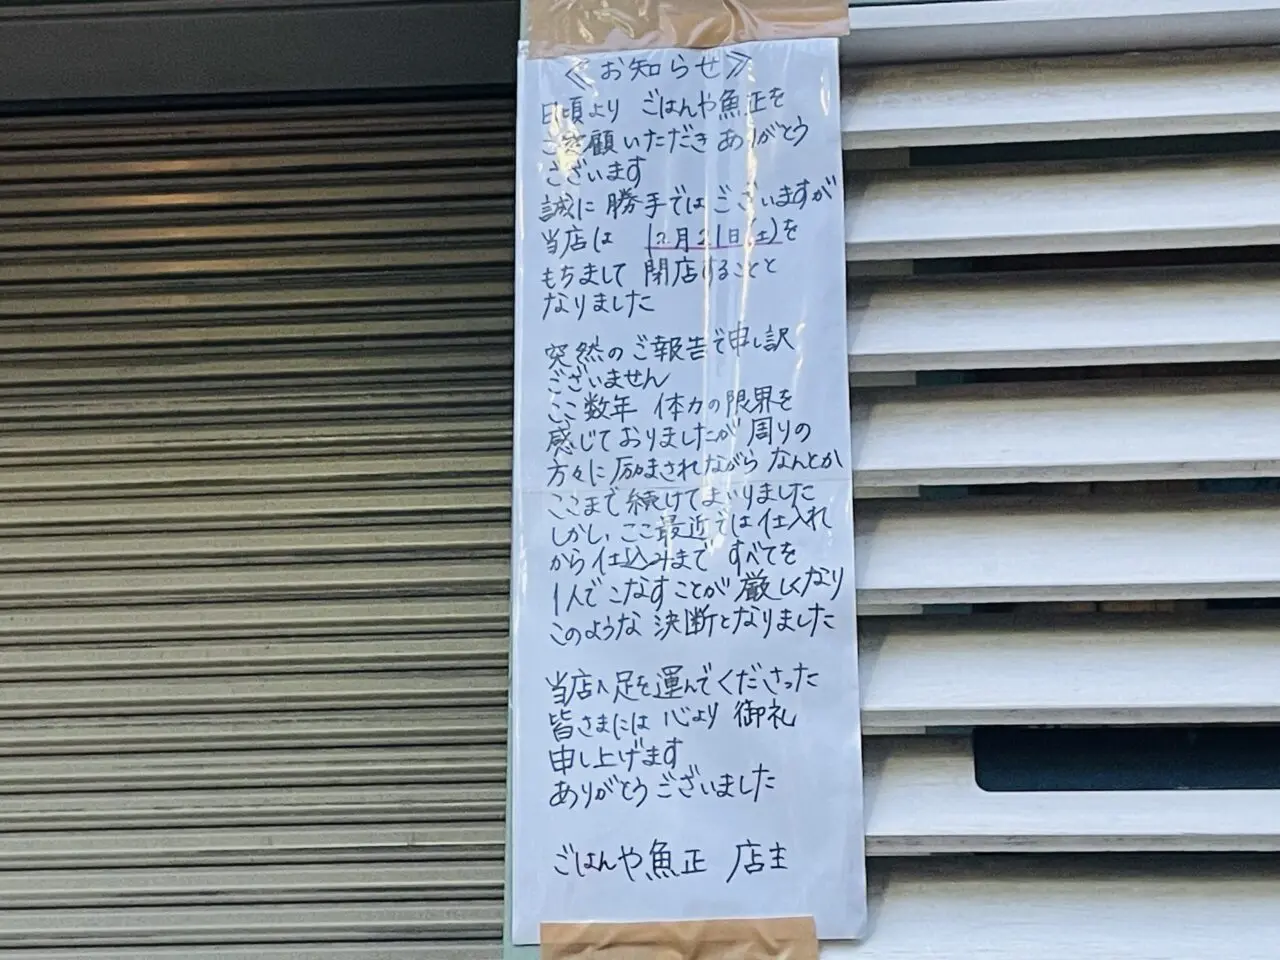 ≪お知らせ≫
日頃より ごはんや魚正を
ご愛顧いただき ありがとう
ございます
誠に勝手ではございますが
当店は 12月21日(土)を
もちまして 閉店することと
なりました
突然のご報告で申し訳
ございません
ここ数年 体力の限界を
感じておりましたが 周りの
方々に励まされながら なんとか
ここまで続けてまいりました
しかし、ここ最近では仕入れ
から仕込みまで すべてを
1人でこなすことが厳しくなり
このような 決断となりました
当店へ足を運んでくださった
皆さまには 心より 御礼
申し上げます
ありがとうございました
ごはんや魚正 店主